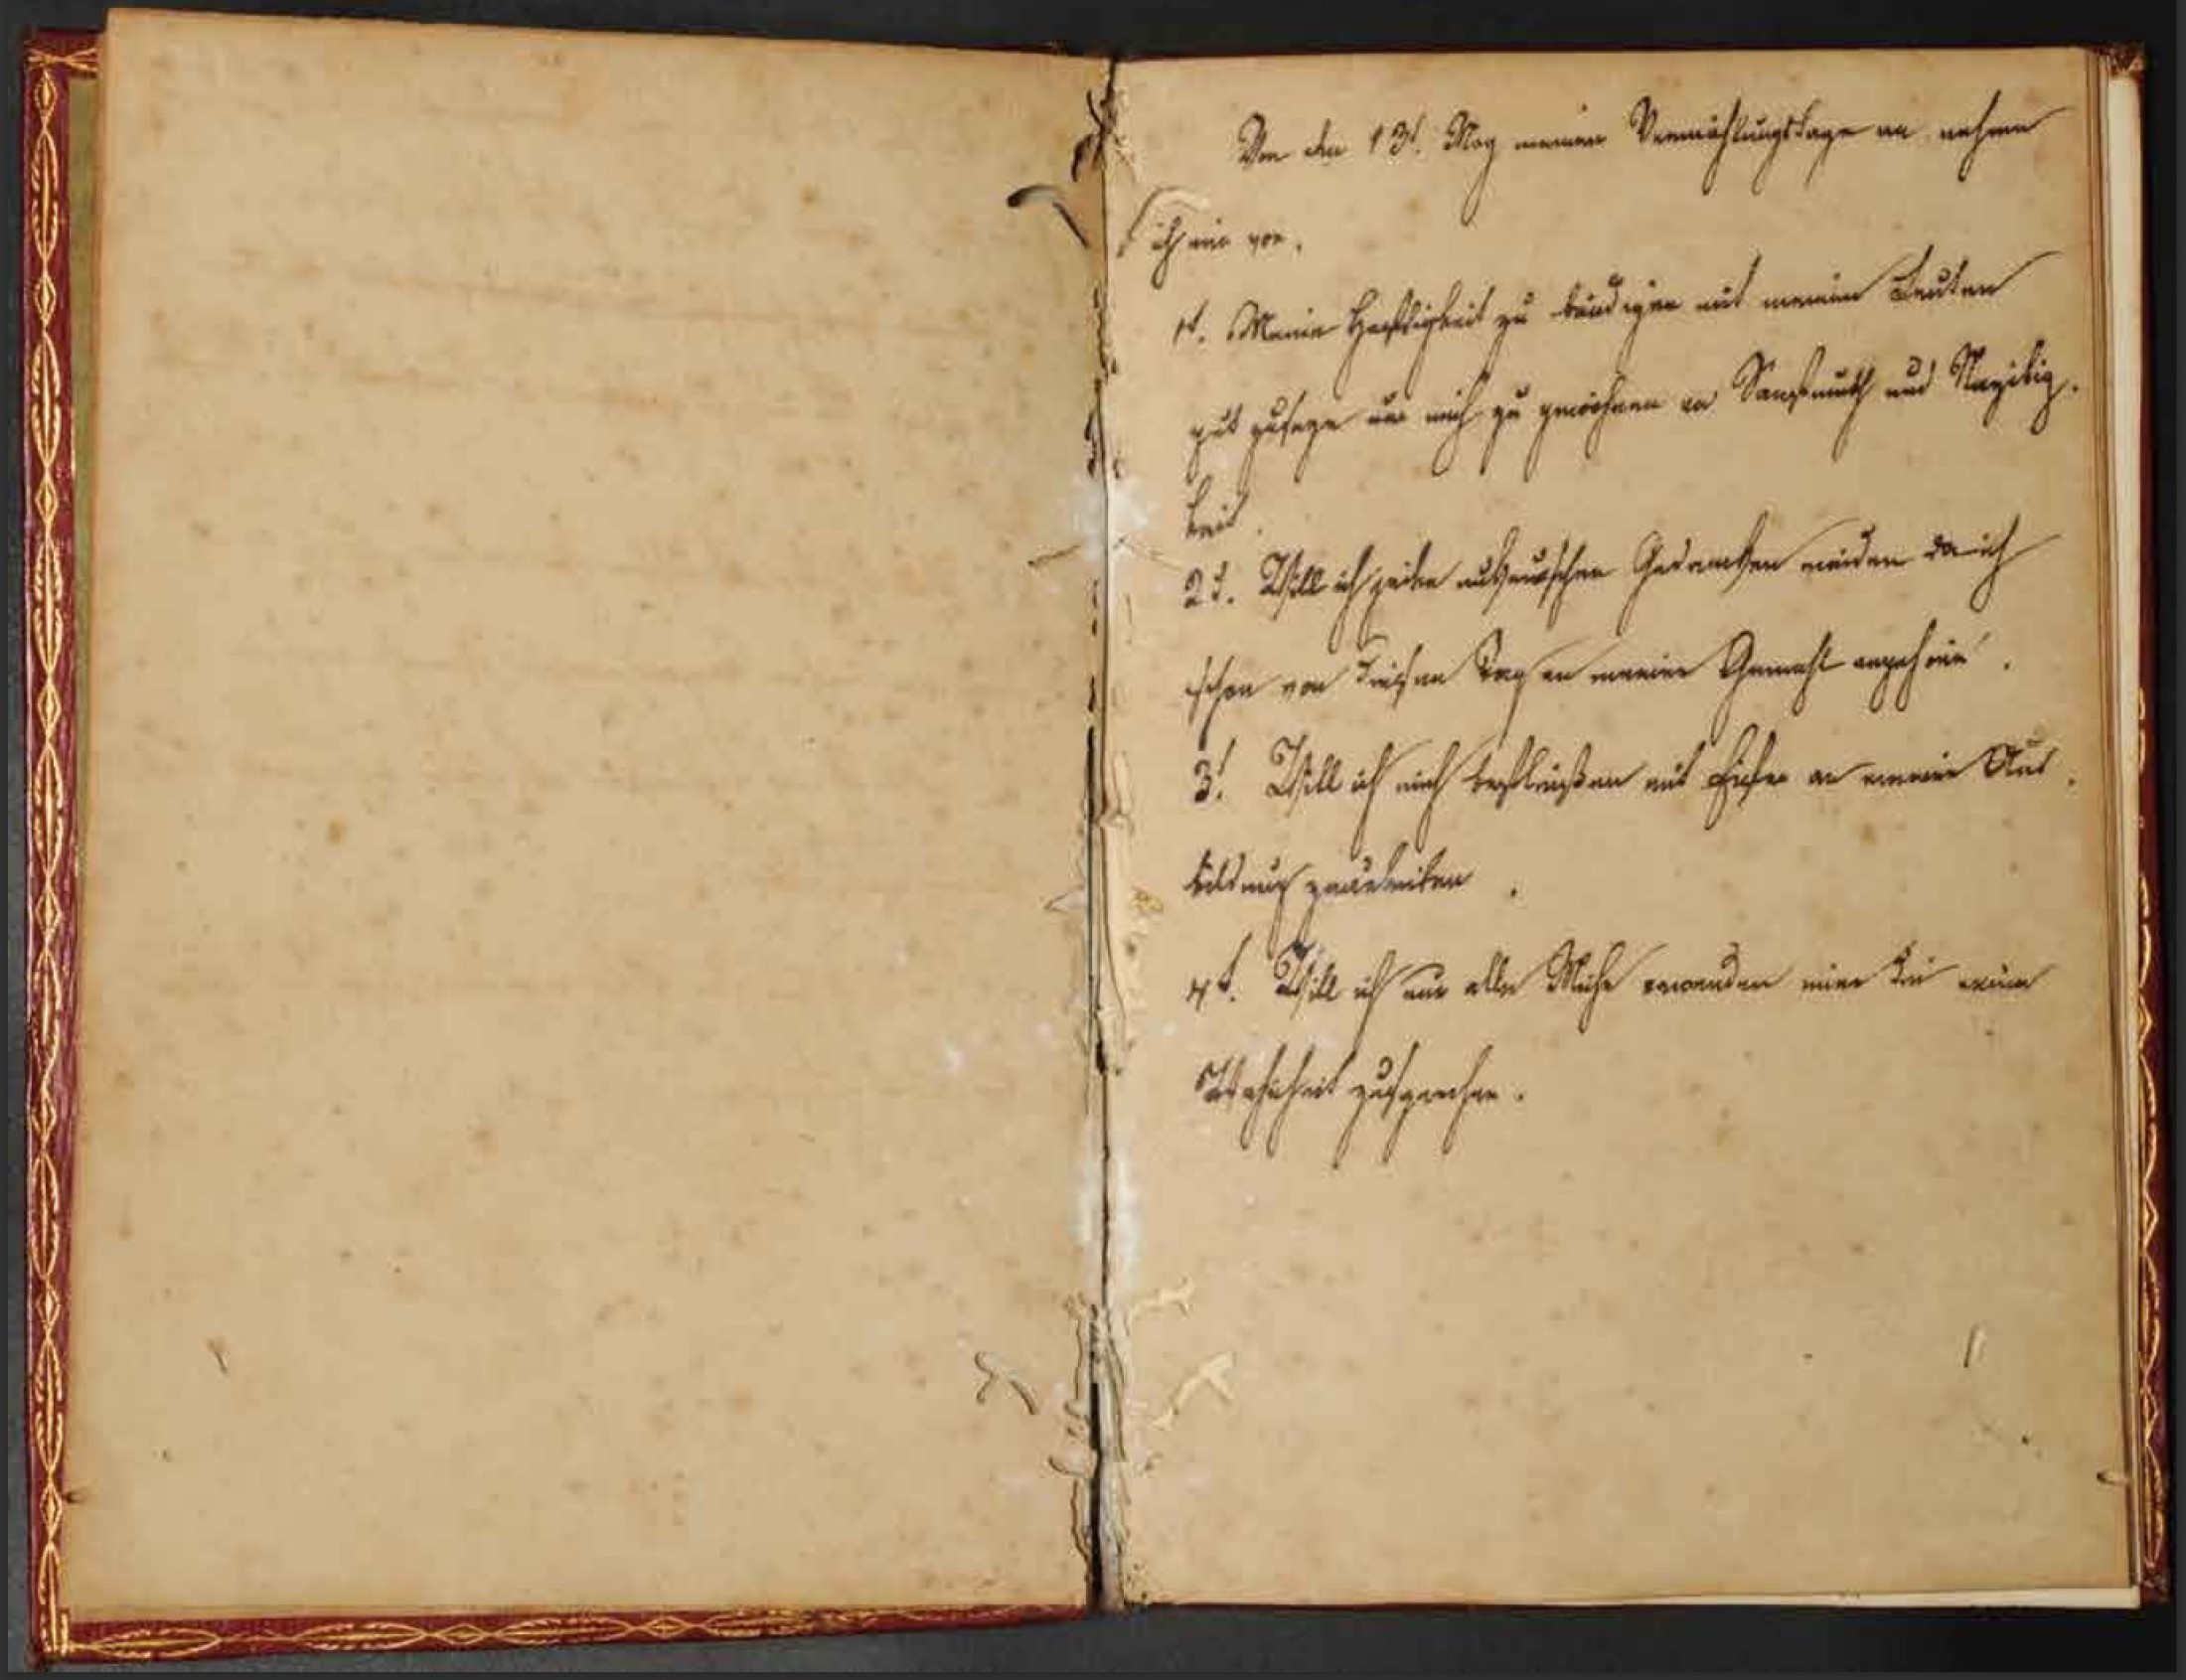 Von den 13t. May meinen Vermählungstage an nehme
ich mir vor.
1t. Meine Heftigkeit zu bändigen mit meinen Leuten
gut zu sein und mich zu gewöhnen an Sanftmuth und Nachgibig-
keit.
2t. Will ich jeden unkeuschen Gedancken meiden da ich
schon von diesen Tag an meinen Gemahl angehöre.
3t. Will ich mich befleißen mit Eifer an meiner Aus-
bildung zu arbeiten.
4t. Will ich mir alle Mühe anwenden immer die reine
Wahrheit zu sprechen.